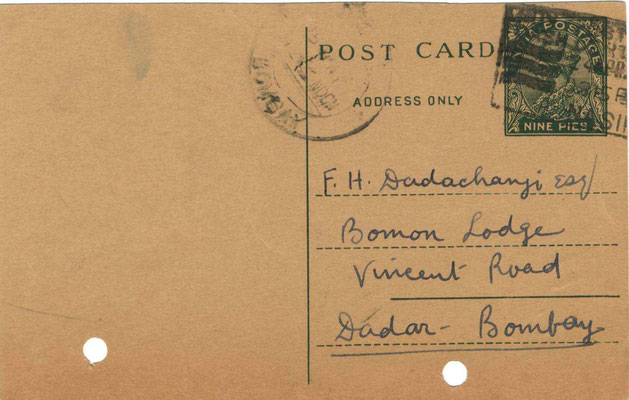 POST CARD
ADDRESS ONLY
POSTAGE
NINE PIES
BOMBAY
F. H. Dadachanji Esq/
Bomon Lodge
Vincent Road
Dadar - Bombay